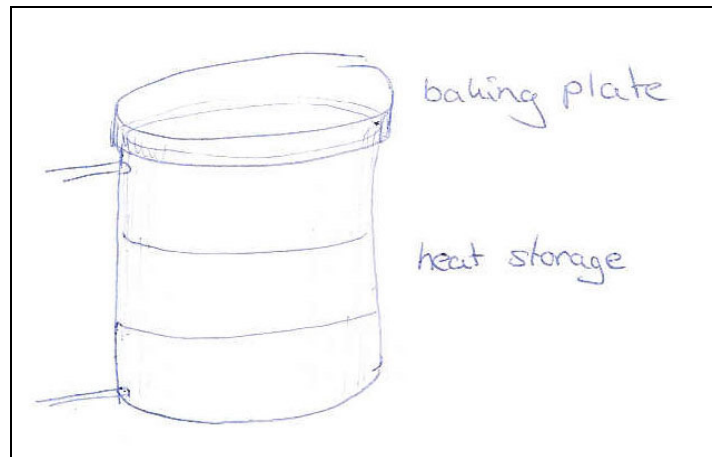 baking plate
heat storage